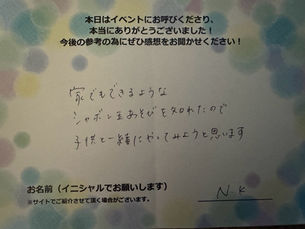 本日はイベントにお呼びくださり、
本当にありがとうございました!
今後の参考の為にぜひ感想をお聞かせください!
家でもできるような
シャボン玉あそびを知れたので
子供と一緒にやってみようと思います
お名前（イニシャルでお願いします）
N.K
※サイトでご紹介させて頂く場合がございます。